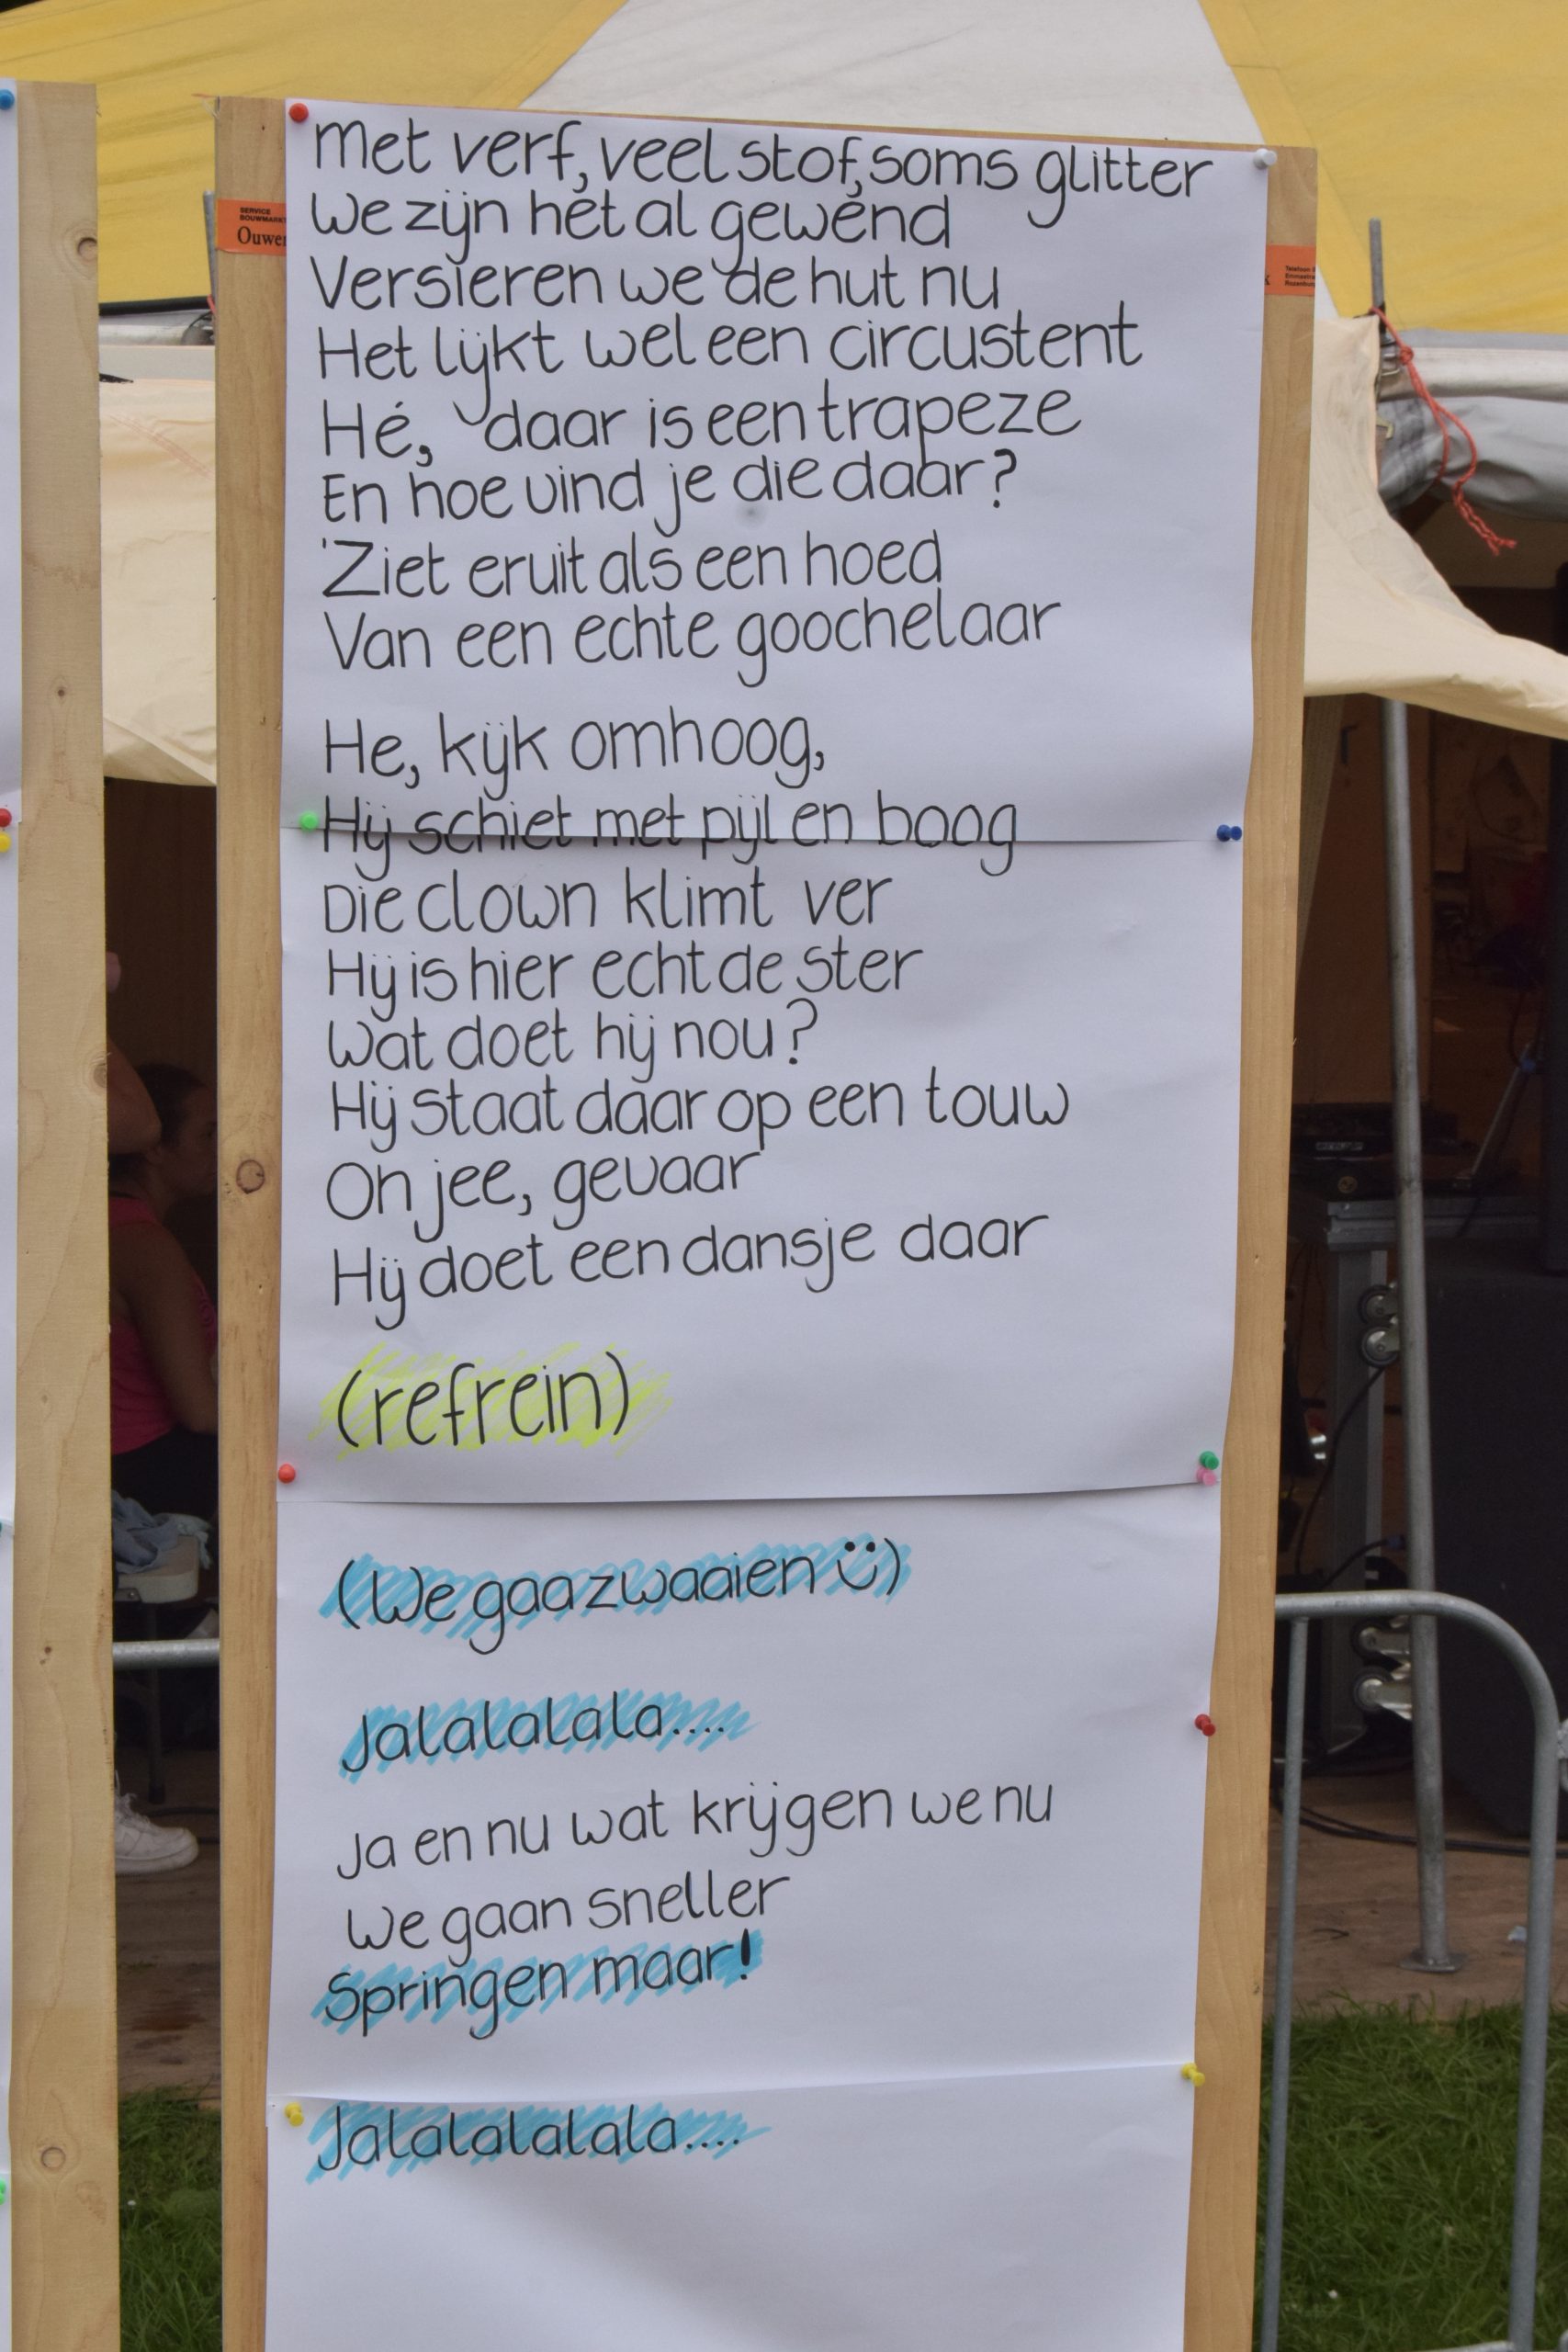 Met verf, veel stof, soms glitter
SERVICE
BOUWMARKT
We zijn het al gewend
Ouwer
Versieren we de hut nu
Het lijkt wel een circustent
Hé, daar is een trapeze
En hoe vind je die daar?
'Ziet eruit als een hoed
Van een echte goochelaar
He, kijk omhoog,
Hij schiet met pijl en boog
Die clown klimt ver
Hij is hier echt de ster
Wat doet hij nou?
Hij staat daar op een touw
Oh jee, gevaar
Hij doet een dansje daar
(refrein)
(We gaa zwaaien ü)
Jalalalala....
Ja en nu wat krijgen we nu
We gaan sneller
Springen maar!
Jalalalalala....